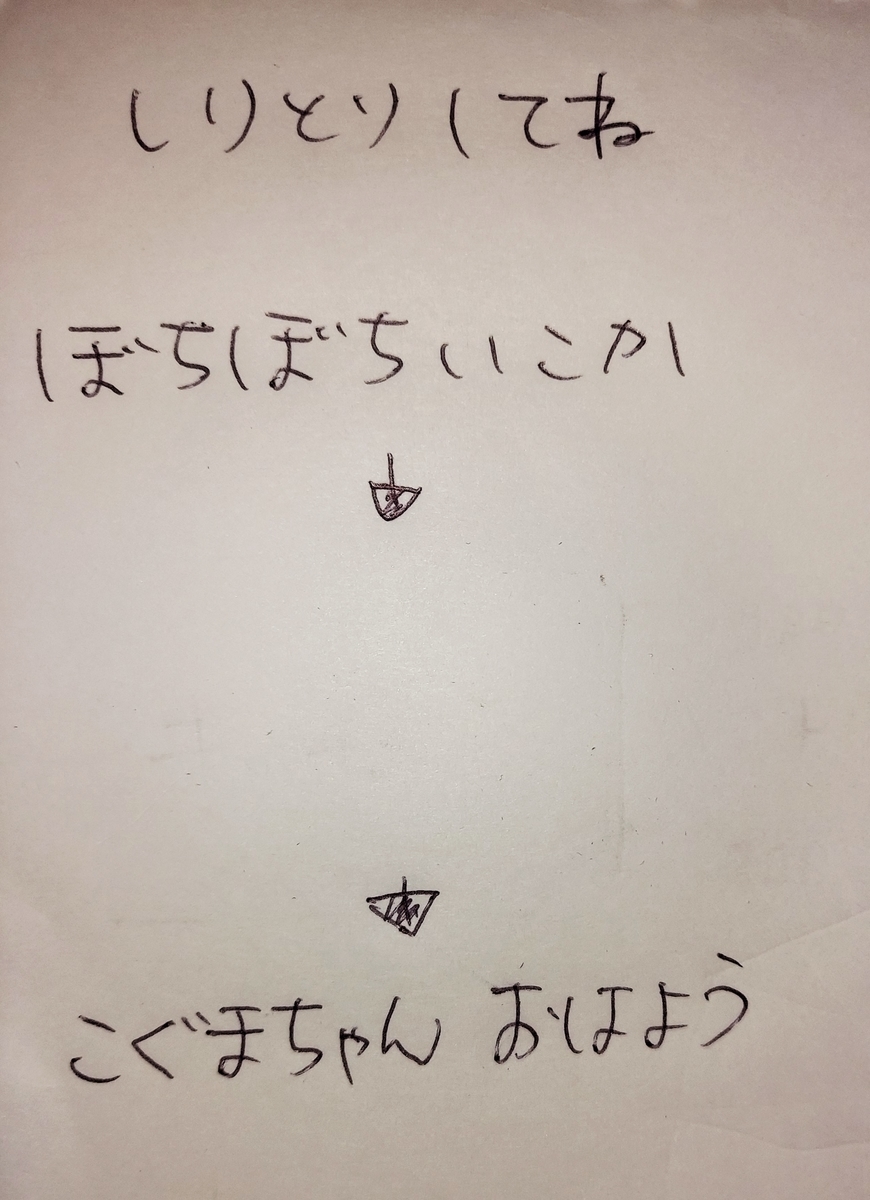 しりとりしてね
ぼちぼちいこか
こぐまちゃん おはよう